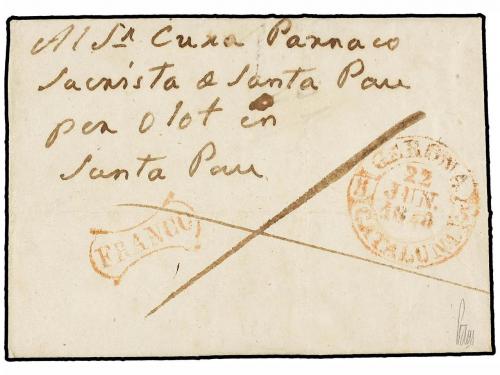 Al Sr. Cura Parraco
Sacrista de Santa Pau
per Olot en
Santa Pau
FRANCO
GERONA
22
JUN.
CATALUÑA